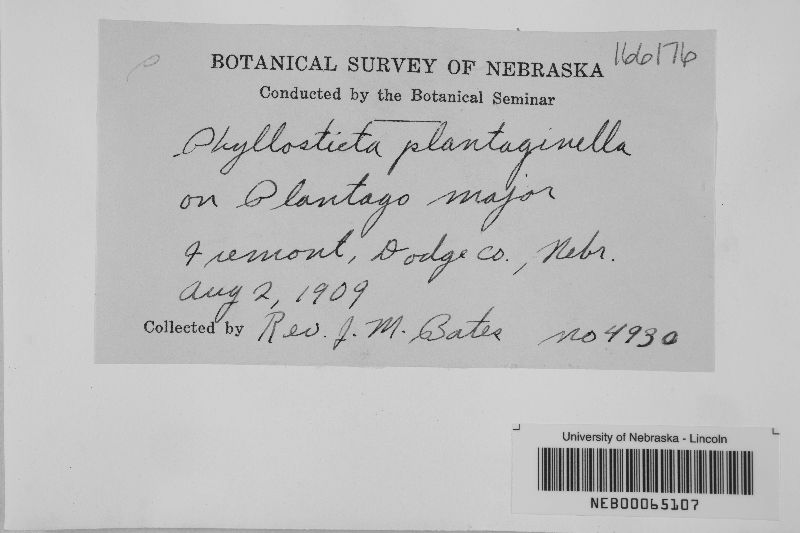 BOTANICAL SURVEY OF NEBRASKA 166176
Conducted by the Botanical Seminar
Phyllosticta plantaginella
on Plantago major
Fremont, Dodge co., Nebr.
Aug 2, 1909
Collected by Rev. J. M. Bates no 4930
University of Nebraska - Lincoln
NEB00065107